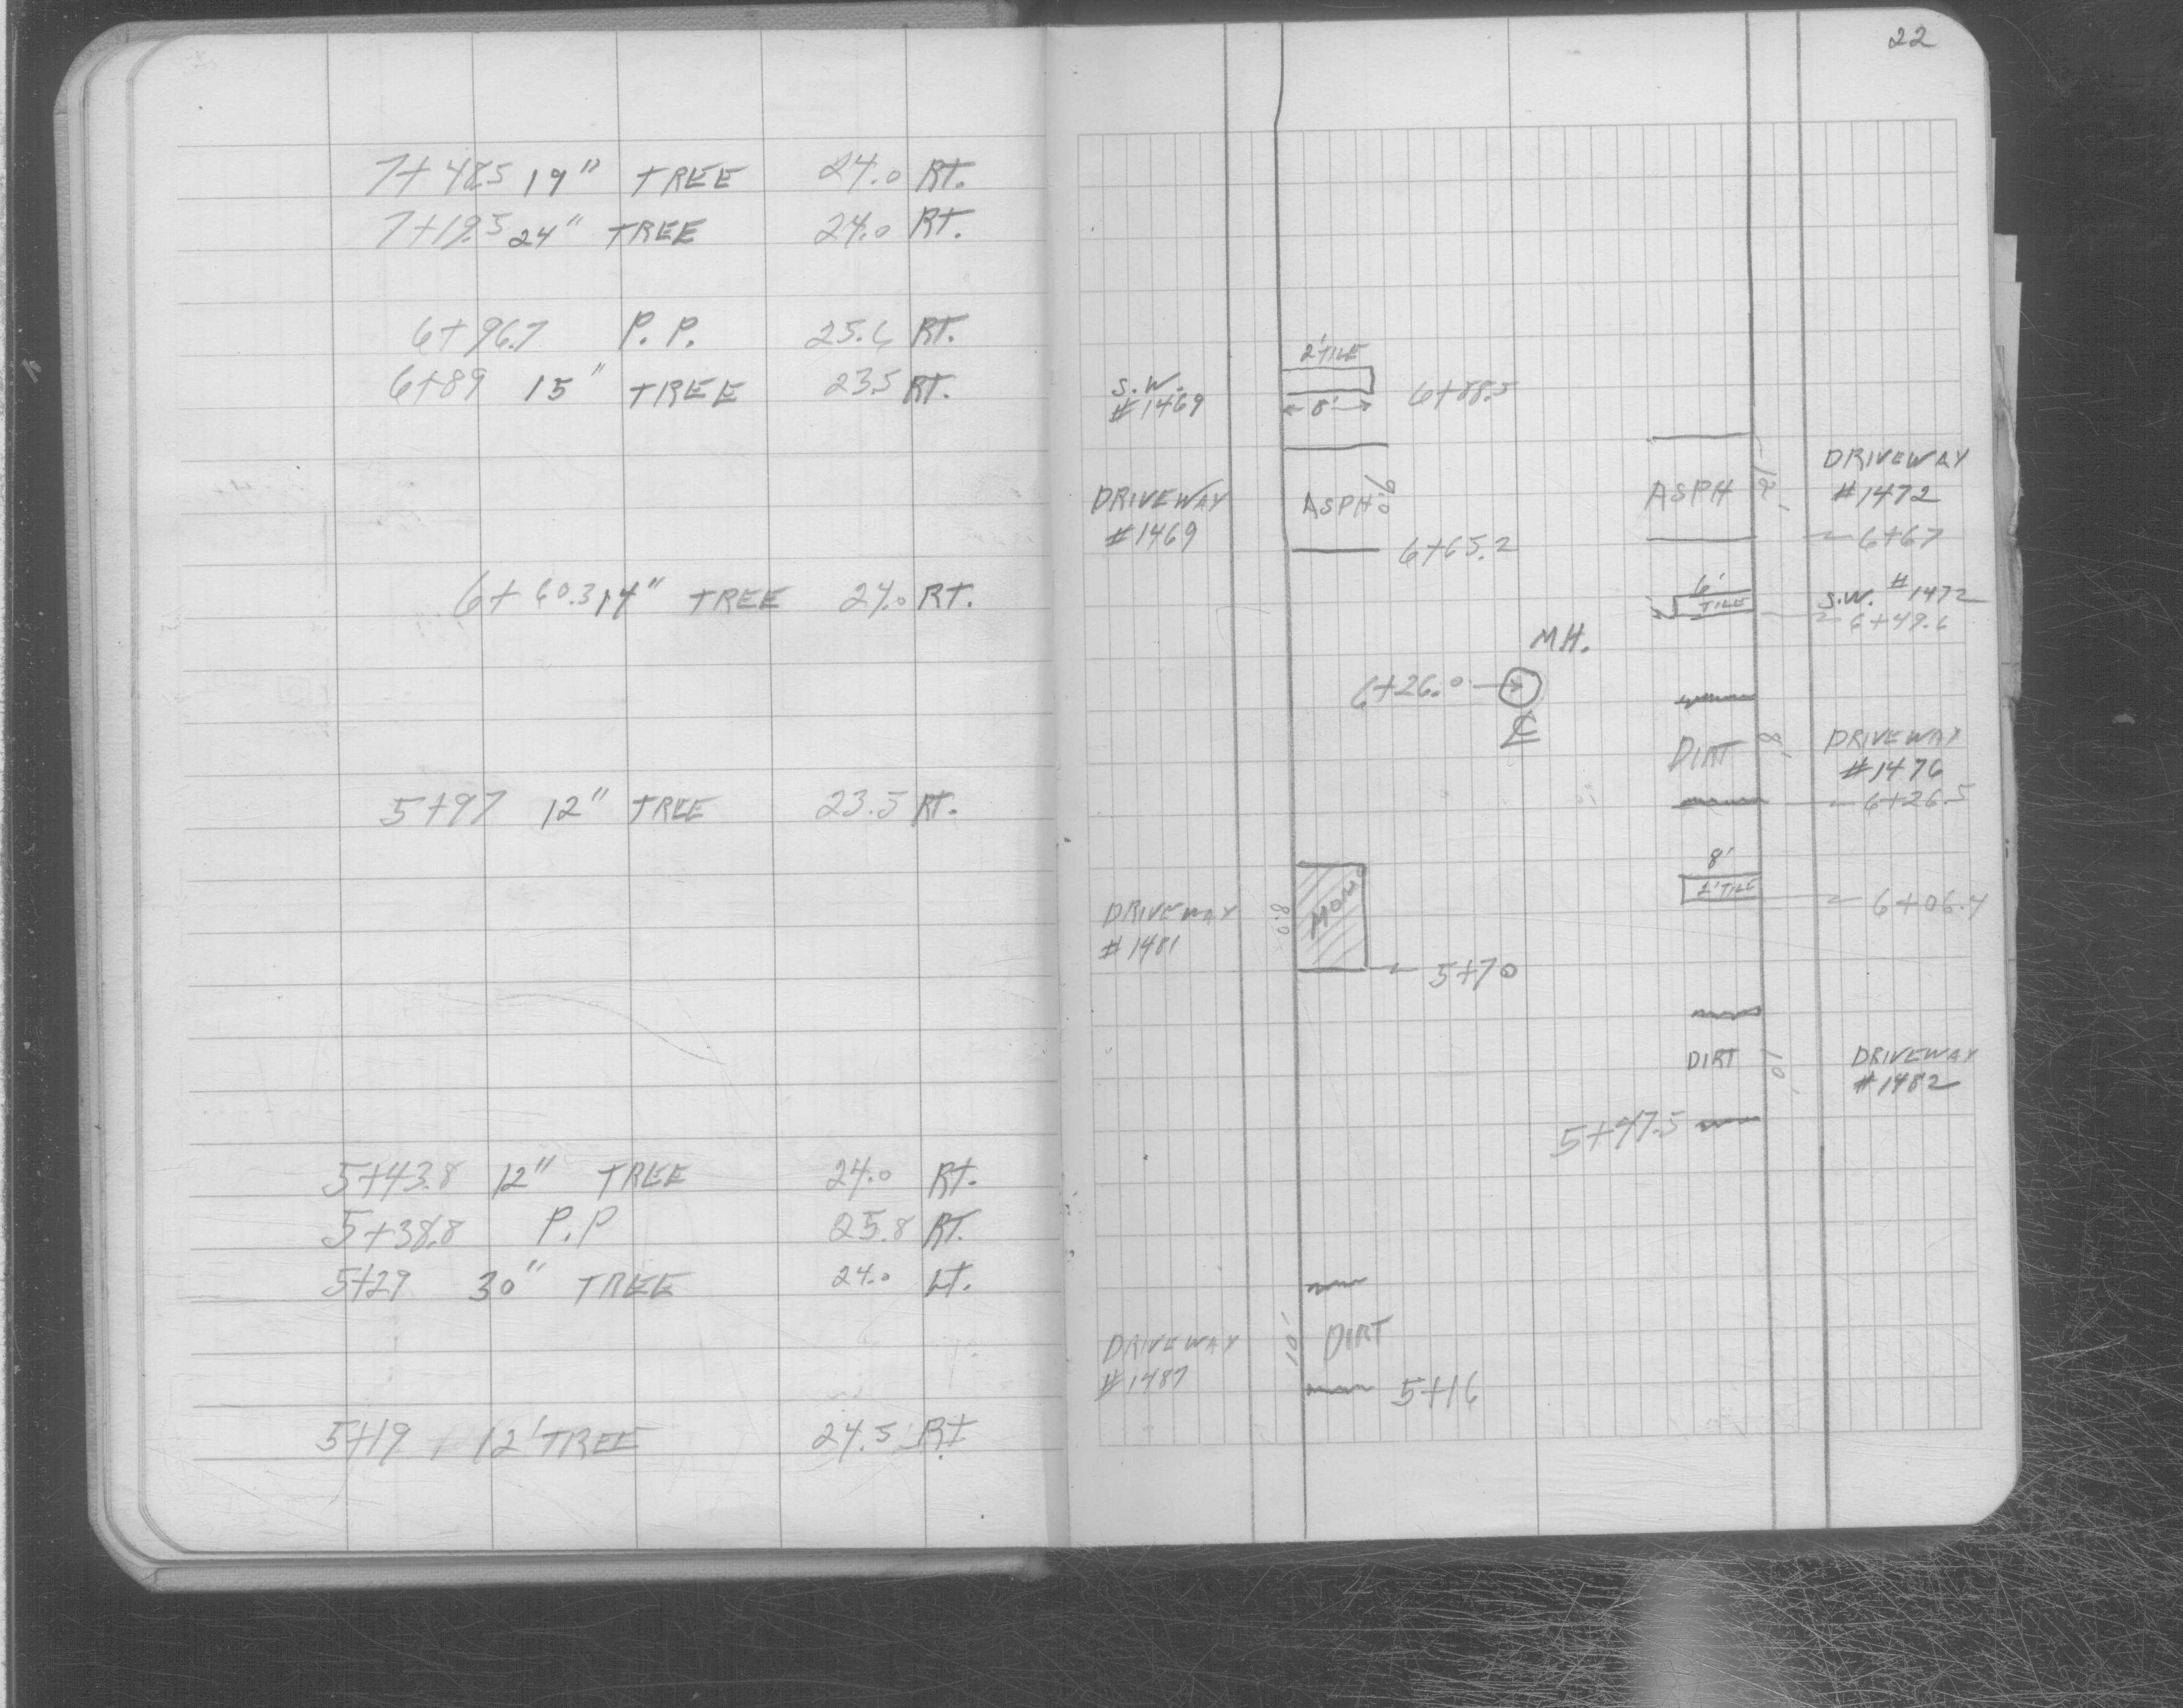 7+48.5 19" TREE 24.0 RT.
7+19.5 24" TREE 24.0 RT.
6+96.7 P.P. 25.6 RT.
6+89 15" TREE 23.5 RT.
6+60.3 14" TREE 24.0 RT.
5+97 12" TREE 23.5 RT.
5+43.8 12" TREE 24.0 RT.
5+38.8 P.P 25.8 RT.
5+29 30" TREE 24.0 LT.
5+19 12' TREE 24.5 RT.
22
2' TILE
S.W.
#1469
8'
6+88.5
DRIVEWAY
#1469
ASPH
9.0
6+65.2
ASPH
12'
DRIVEWAY
#1472
6+67
6'
TILE
S.W. #1472
6+49.6
M.H.
6+26.0
℄
DIRT
8'
DRIVEWAY
#1476
6+26.5
8'
2' TILE
6+06.4
DRIVEWAY
#1481
8.0
MONO
5+70
DIRT
10'
DRIVEWAY
#1482
5+97.5
DRIVEWAY
#1487
10'
DIRT
5+16